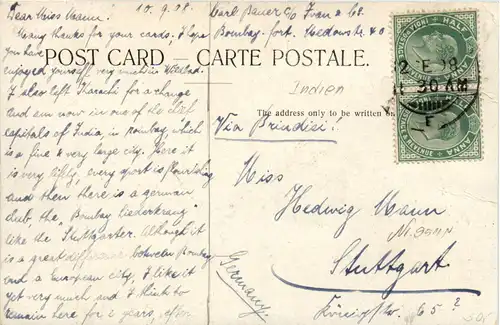 Dear Miss Mann! 10.9.08.
Many thanks for your cards, I hope
you have
enjoyed yourself very much in
I also left Karachi for a change
and am now in one of the chief
capitals of India, in Bombay, which
is a fine & very large city. Here it
is very jolly, every sport is flourishing
and then there is a german
club, the "Bombay Liederkranz"
like the "Stuttgarter". Although it
is a great difference between Bombay
and a European city, I like it
yet very much and I think to
remain here for 2 years, often
Carl Bauer c/o Ivan & Co.
Bombay-fort. Medowstr. 40
POST CARD — CARTE POSTALE.
Indien
The address only to be written
Via Brindisi!
Miss
Hedwig Mann
Stuttgart
Königstr. 65?
Germany.
HALF ANNA
11 30 AM